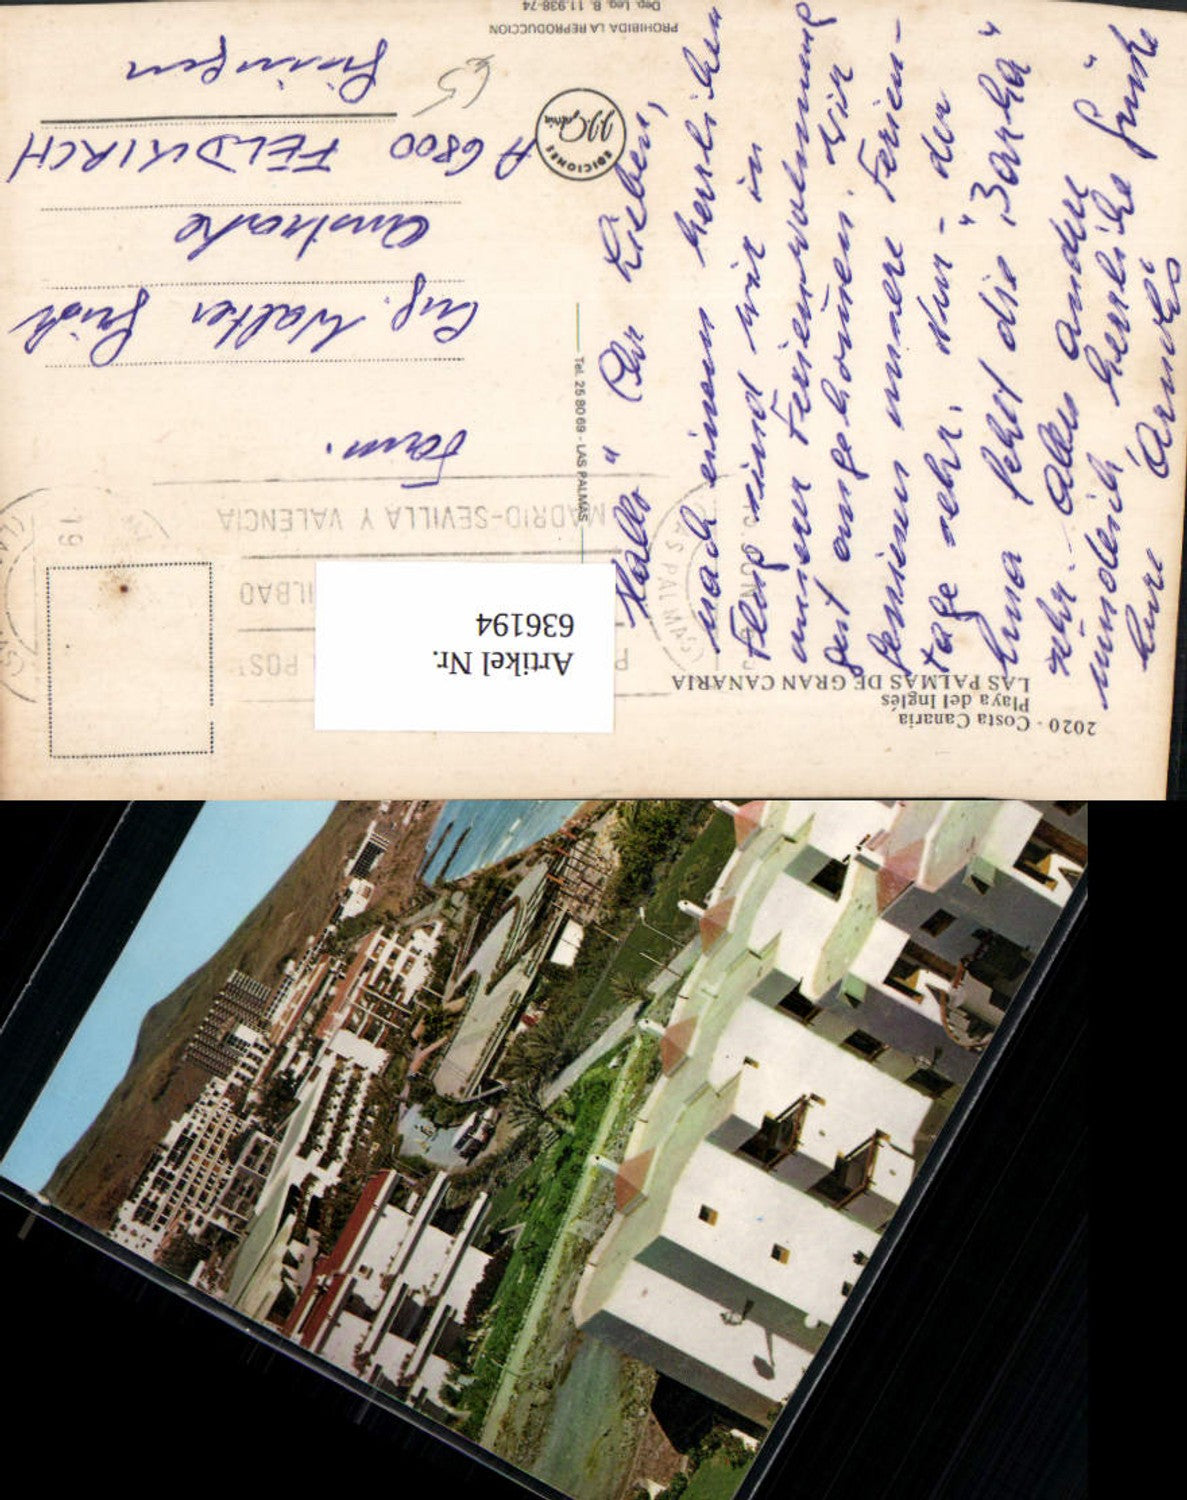 2020 - Costa Canaria
Playa del Inglés
LAS PALMAS DE GRAN CANARIA
Hallo" Ihr Lieben,
nach einem herrlichen
Flug sind wir in
unserer Ferienwohnung
gut angekommen. Wir
genießen unsere Ferien-
tage sehr. Nur - der
Luna fehlt die "Barka"
sehr. Alles andere
mündlich herzliche Grüße
Eure
EDICIONES
Tel. 25 80 69 - LAS PALMAS
PROHIBIDA LA REPRODUCCION
Dep. Leg. B. 11.938-74
Artikel Nr.
636194
POST
BILBAO
MADRID-SEVILLA Y VALENCIA
LAS PALMAS
19
Fam.
Ing. Walter
A 6800 FELDKIRCH
65